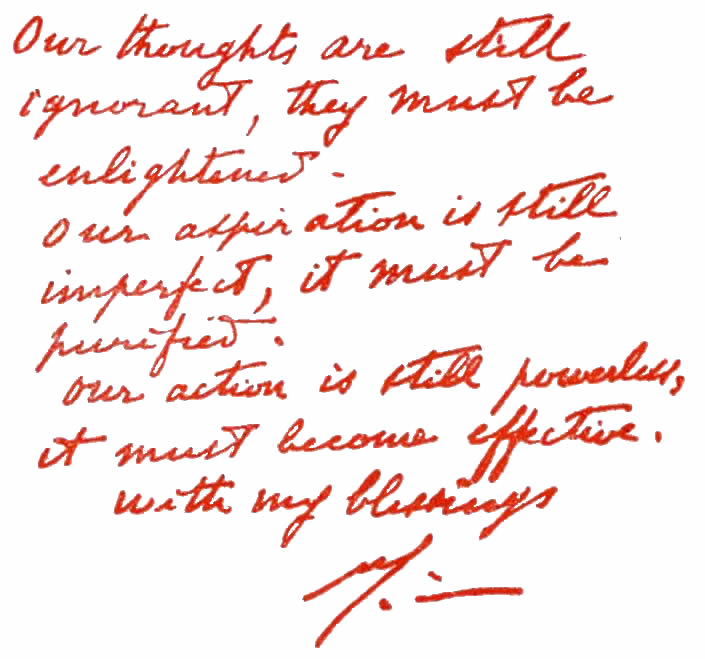 Our thoughts are still
ignorant, they must be
enlightened.
Our aspiration is still
imperfect, it must be
purified.
Our action is still powerless,
it must become effective.
with my blessings